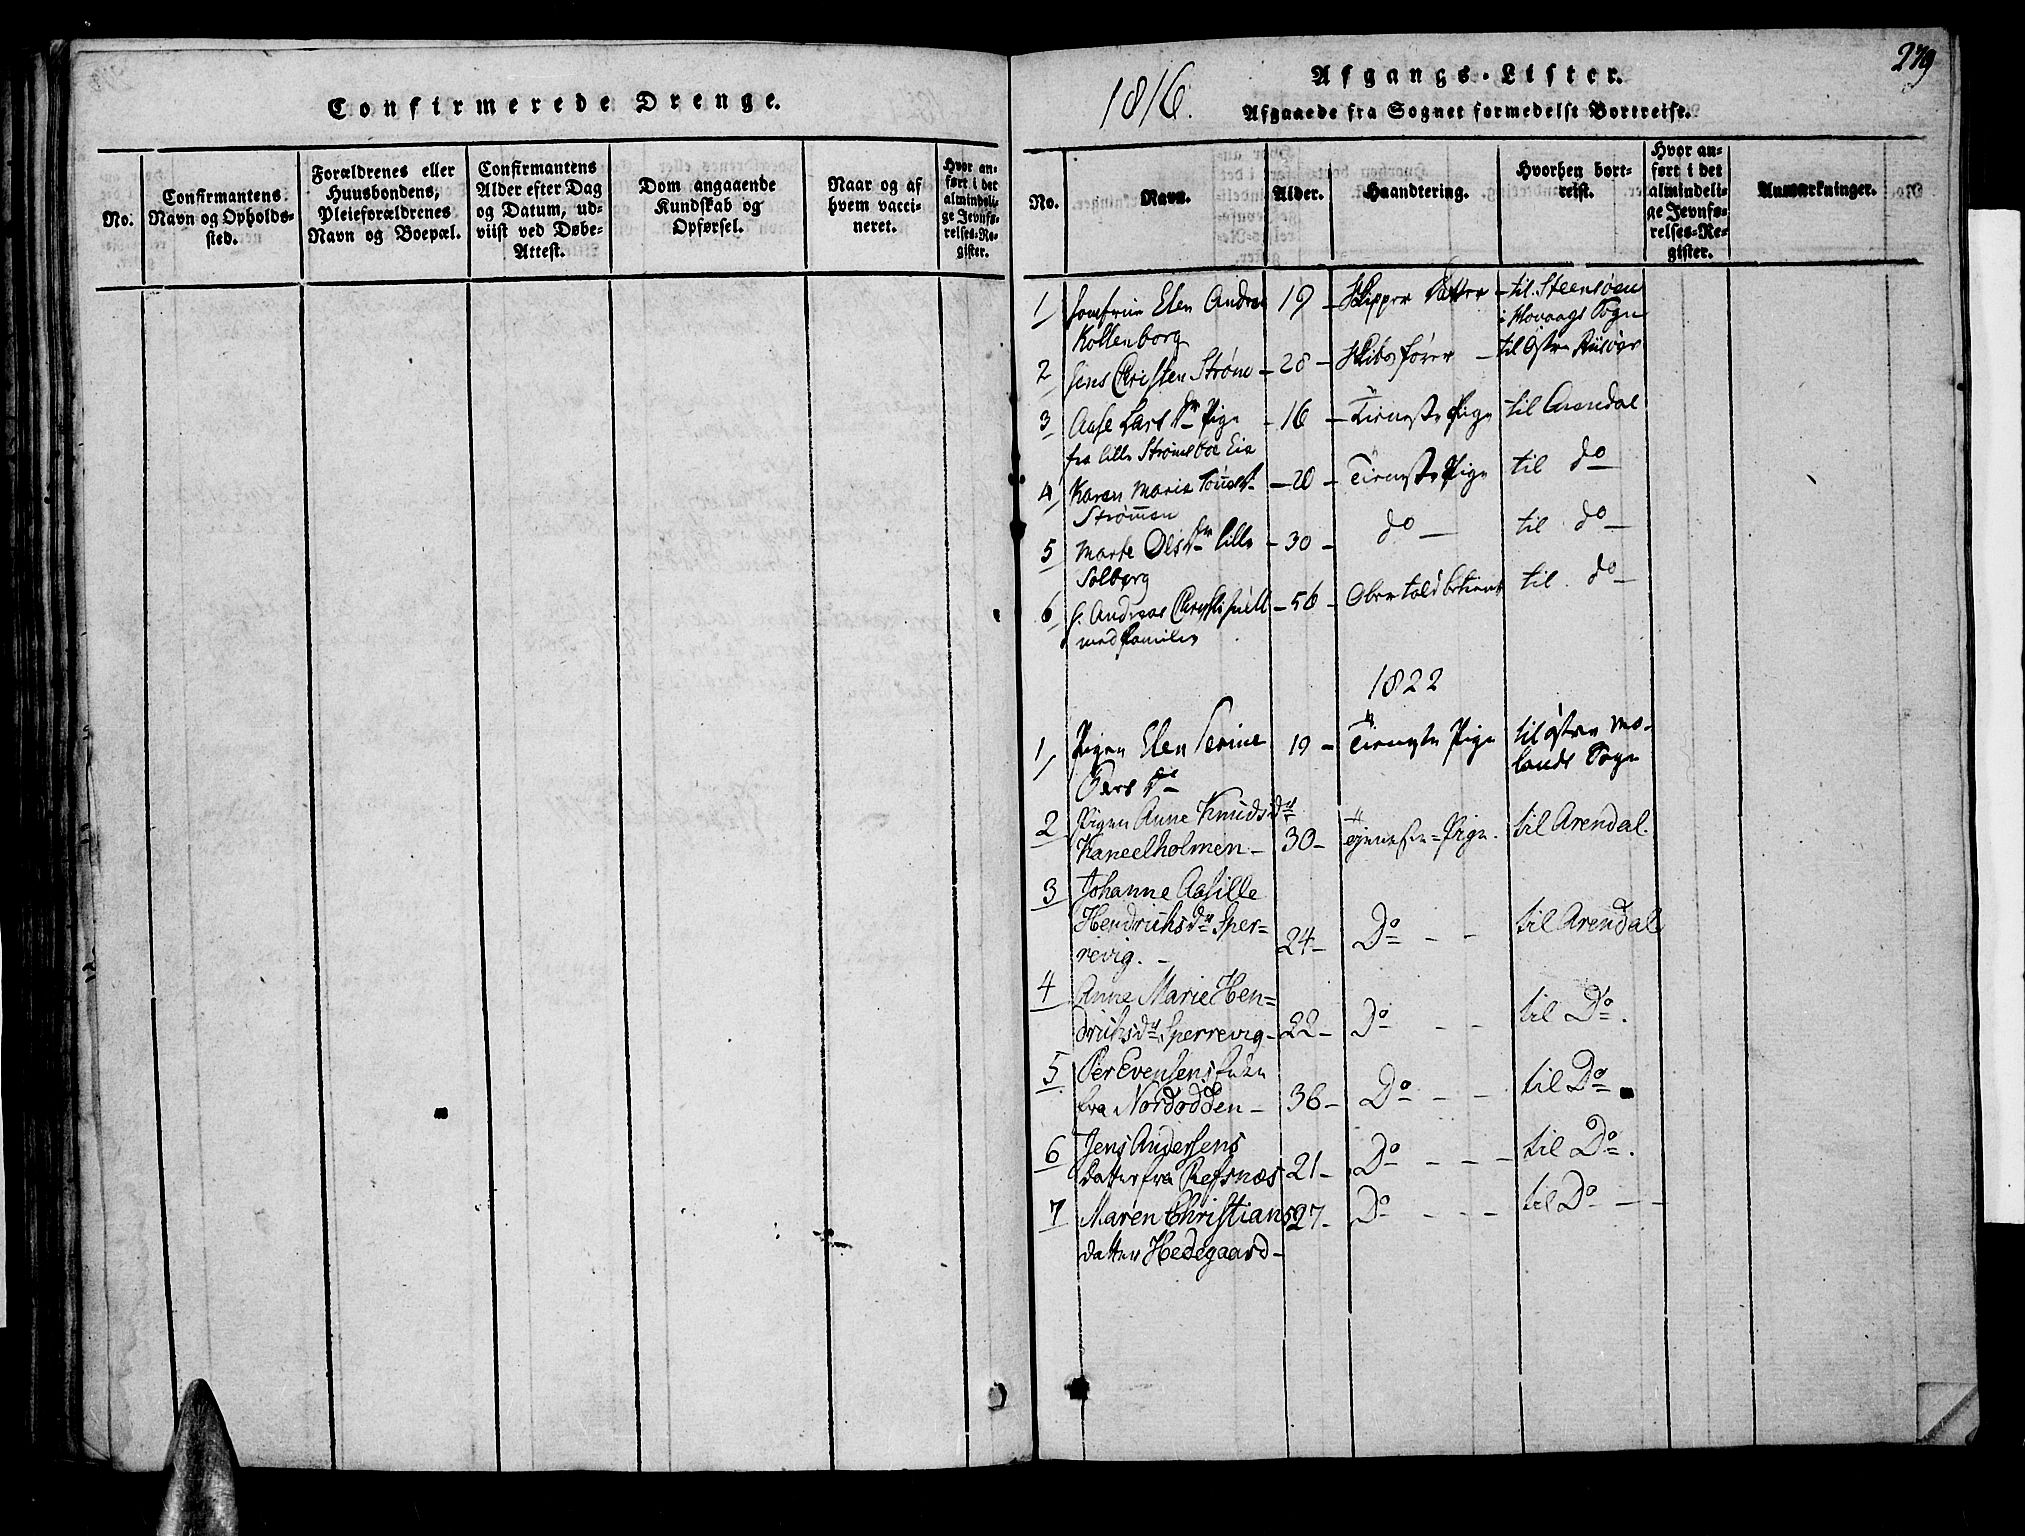 Confirmerede Drenge.
No.
Confirmantens Navn og Opholds-
sted.
Forældrenes eller
Huusbondens,
Pleieforældrenes
Navn og Boepæl.
Confirmantens
Alder efter Dag
og Datum, ud-
viist ved Døbe-
Attest.
Dom angaaende
Kundskab og
Opførsel.
Naar og af
hvem vacci-
neret.
Hvor an-
ført i det
almindeli-
ge Jevnfø-
relses-Re-
gister.
279
1816.
Afgangs-Lister.
Afgaaede fra Sognet formedelst Bortreise.
No.
Navn.
Alder.
Haandtering.
Hvorhen bort-
reist.
Hvor an-
ført i det
almindeli-
ge Jevnfø-
relses-Re-
gister.
Anmærkninger.
1 Jomfrue Elen Andrea 19 - Skipper Datter - til Steensöen
Kollenborg i Hovaags Sogn
2 Jens Christen Strøm - 28 - Skibsfører - til Østre Riisöer
3 Aase Lars Dr Pige - 16 - Tieneste Pige til Arendal
fra lille Strømsboe Eie
4 Karen Marie - 20 - Tieneste Pige til do
Strømmen
5 Marte Olsdr lille - 30 - do - til do
Solberg
6 - 56 - til do
med Familie
1822
1 Pigen Elen Serine 19 - Tieneste Pige til østre Mo-
Pers Dr lands Sogn
2 Pigen Anne Knudsdr
Kaneelholmen - 30 - Tjeneste-Pige. til Arendal.
3 Johanne Aasille
Hendrichsdr Sper- 24 - Do - - til Arendal
revig. -
4 Anne Marie Hen-
drichsdr Sperrevig - 22 - Do - - til Do.
5 Per Evensens Enke
fra Nordodden - 36 - Do - - til Do
6 Jens Andersens
Datter fra Refsnæs 21 - Do - - - til Do.
7 Maren Christians 27 - Do - - - til Do - -
datter Hedegaard -